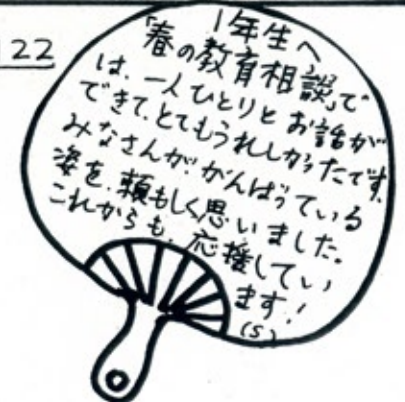 22
1年生へ
「春の教育相談」で
は、一人ひとりとお話が
できて、とてもうれしかったです。
みなさんが、がんばっている
姿を、頼もしく思いました。
これからも、応援してい
ます!
(S)